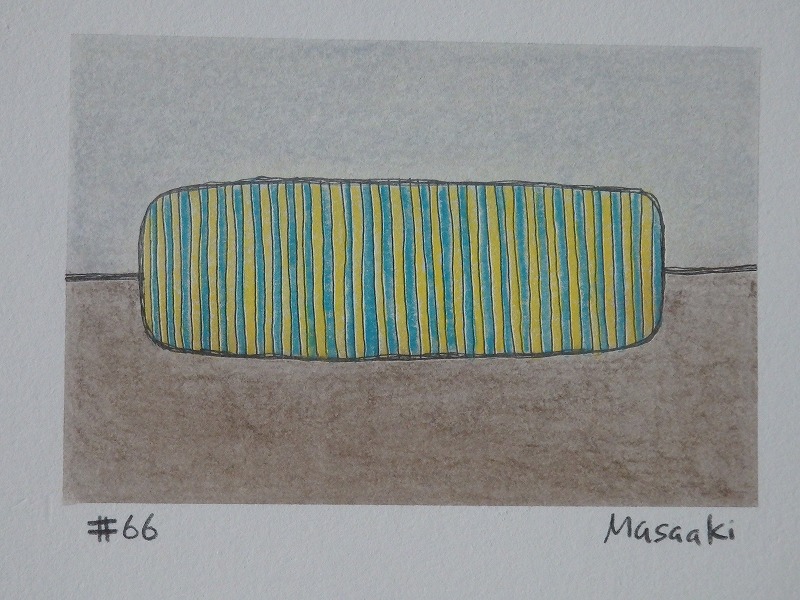 #66
Masaaki